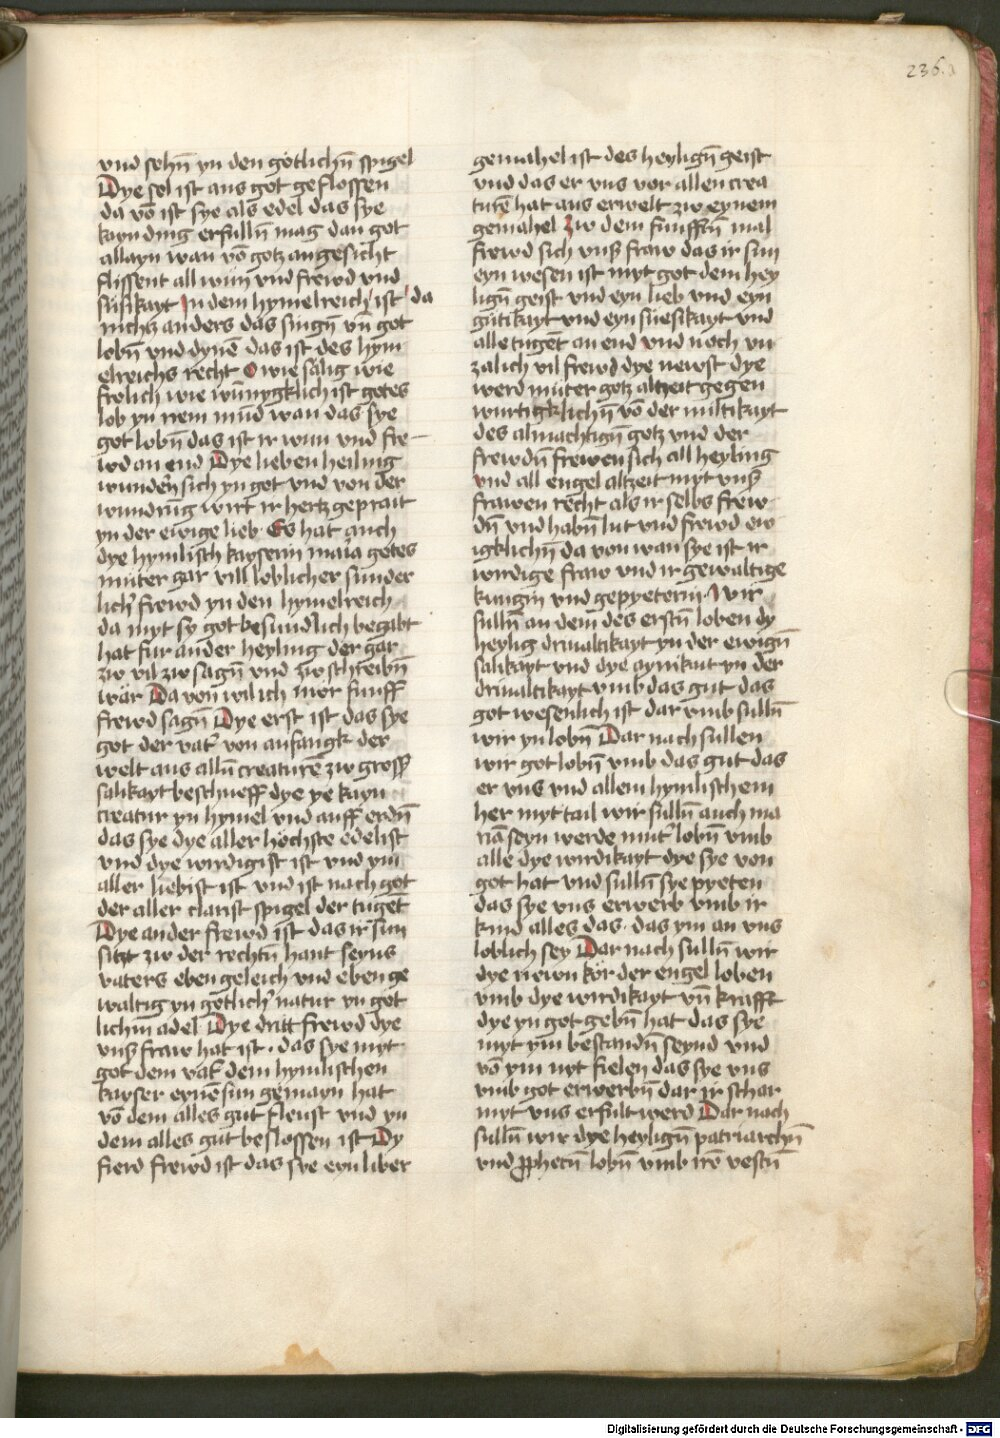 236.
vnd sehn̄ yn den gotlichn̄ spigel
Dye sel ist aus got geflossen
da võ ist sye als edel das sye
kayn ding erfulln̄ mag dan got
allayn wan võ gotz angesicht
flissent all wun̄ vnd frewd vnd
süsikayt In dem hymelreich ist da
nichtz anders das singn̄ vn̄ got
lobn̄ vnd dynē das ist des hym
elreichs recht O wie salig wie
frolich wie wun̄ygklich ist gotes
lob yn irem mūd wan das sye
got lobn̄ das ist ir wun̄ vnd fre-
wd an end Dye lieben heiling
wundern̄ sich yn got vnd von der
wundrūg wirt ir hertz geprait
yn der ewige lieb Es hat auch
dye hymlisch kayserin maria gotes
muter gar vill loblicher sunder
lichr̄ frewd yn den hymelreich
da myt sy got besundlich begabt
hat fur ander heyling der gar
zw vil zw sagn̄ vnd zw schreibn̄
wär Da von wil ich nwr funff
frewd sagn̄ Dye erst ist das sye
got der vatr̄ von anfangk der
welt aus alln̄ creaturē zw gross
salikayt beschueff dye ye kayn
creatur yn hymel vnd auff erdn̄
das sye dye aller höchste edelist
vnd dye wirdigist ist vnd ym
aller liebist ist vnd ist nach got
der aller clarist spigel der tugēt
Dye ander frewd ist das ir sun
sitzt zw der rechtn̄ hant seyns
vaters eben geleich vnd eben ge
waltig yn gotlichr̄ natur yn got
lichm̄ adel Dye dritt frewd dye
vnsr̄ fraw hat ist · das sye myt
got dem vatr̄ dem hymlischen
kayser eynē sun gemayn hat
võ dem alles gut fleust vnd yn
dem alles gut beslossen ist Dy
fierd frewd ist das sye eyn liber
gemahel ist des heylign̄ geist
vnd das er vns vor allen crea
turē hat aus erwelt zw eynem
gemahel Zw dem funfftn̄ mal
frewd sich vnsr̄ fraw das ir sun
eyn wesen ist myt got dem hey
lign̄ geist vnd eyn lieb vnd eyn
gutikayt vnd eyn süesikayt vnd
alle tugēt an end vnd noch vn
zalich vil frewd dye newst dye
werd muter gotz altzeit gegen
wurtigklichn̄ võ der miltikayt
des almachtign̄ gotz vnd der
frewdn̄ frewen sich all heyling
vnd all engel altzeit myt vnsr̄
frawen recht als ir selbs frew
dn̄ vnd habn̄ lut vnd frewd ew
igklichn̄ da von wan sye ist ir
wirdige fraw vnd ir gewaltige
kungin vnd gepyeterin · Wir
sulln̄ an dem des erstn̄ loben dy
heylig driualtikayt yn der ewign̄
salikayt vnd dye aynikait yn der
driualtikayt vmb das gut das
got wesenlich ist dar vmb sulln̄
wir yn lobn̄ Dar nach sullen
wir got lobn̄ vmb das gut das
er vns vnd allem hymlischem
her myt tail wir sulln̄ auch ma
riā seyn werde mutr̄ lobn̄ vmb
alle dye wirdikayt dye sye von
got hat vnd sulln̄ sye pyeten
das sye vns erwerb vmb ir
kind alles das · das ym an vns
loblich sey Dar nach sulln̄ wir
dye newn kör der engel loben
vmb dye wirdikayt vn̄ krafft
dye yn got gebn̄ hat das sye
myt ym bestandn̄ seynd vnd
võ ym nyt fielen das sye vns
vmb got erwerbn̄ dar ir schar
myt vns erfult werd Dar nach
sulln̄ wir dye heylign̄ patriarchn̄
vnd ꝓphetn̄ lobn̄ vmb irē vestn̄
Digitalisierung gefördert durch die Deutsche Forschungsgemeinschaft - DFG